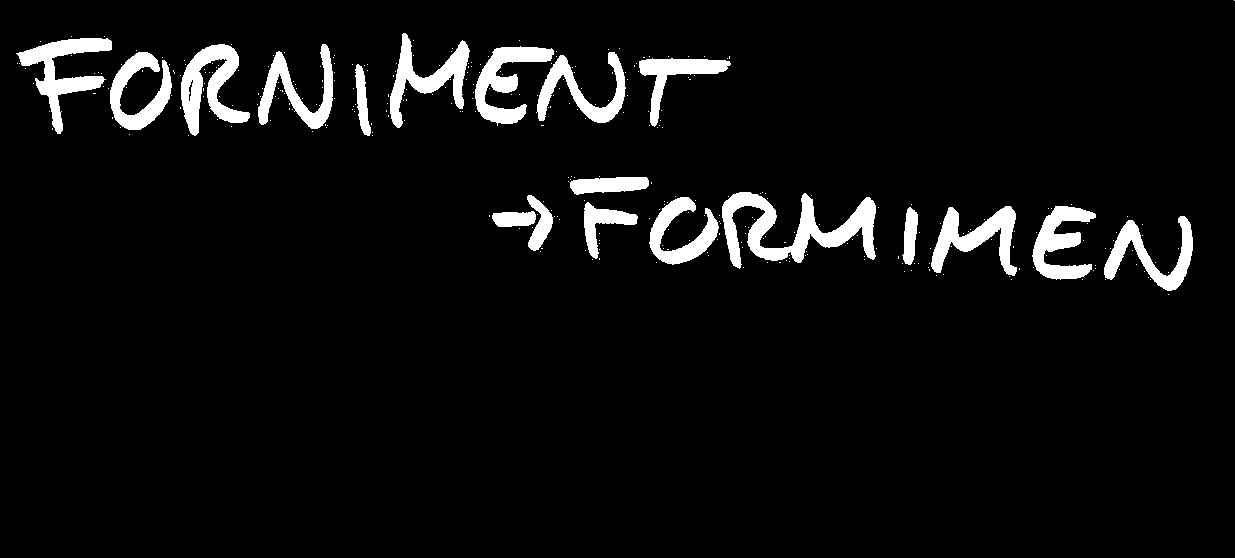 FORNIMENT
→ FORMIMEN